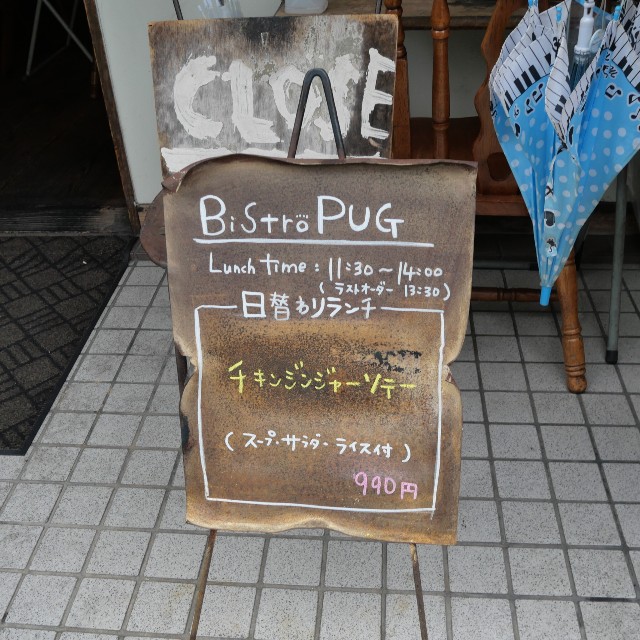 CLOSE
BiStro PUG
Lunch time : 11:30 ~ 14:00
( ラストオーダー 13:30 )
日替わりランチ
チキンジンジャーソテー
( スープ・サラダ・ライス付 )
990円